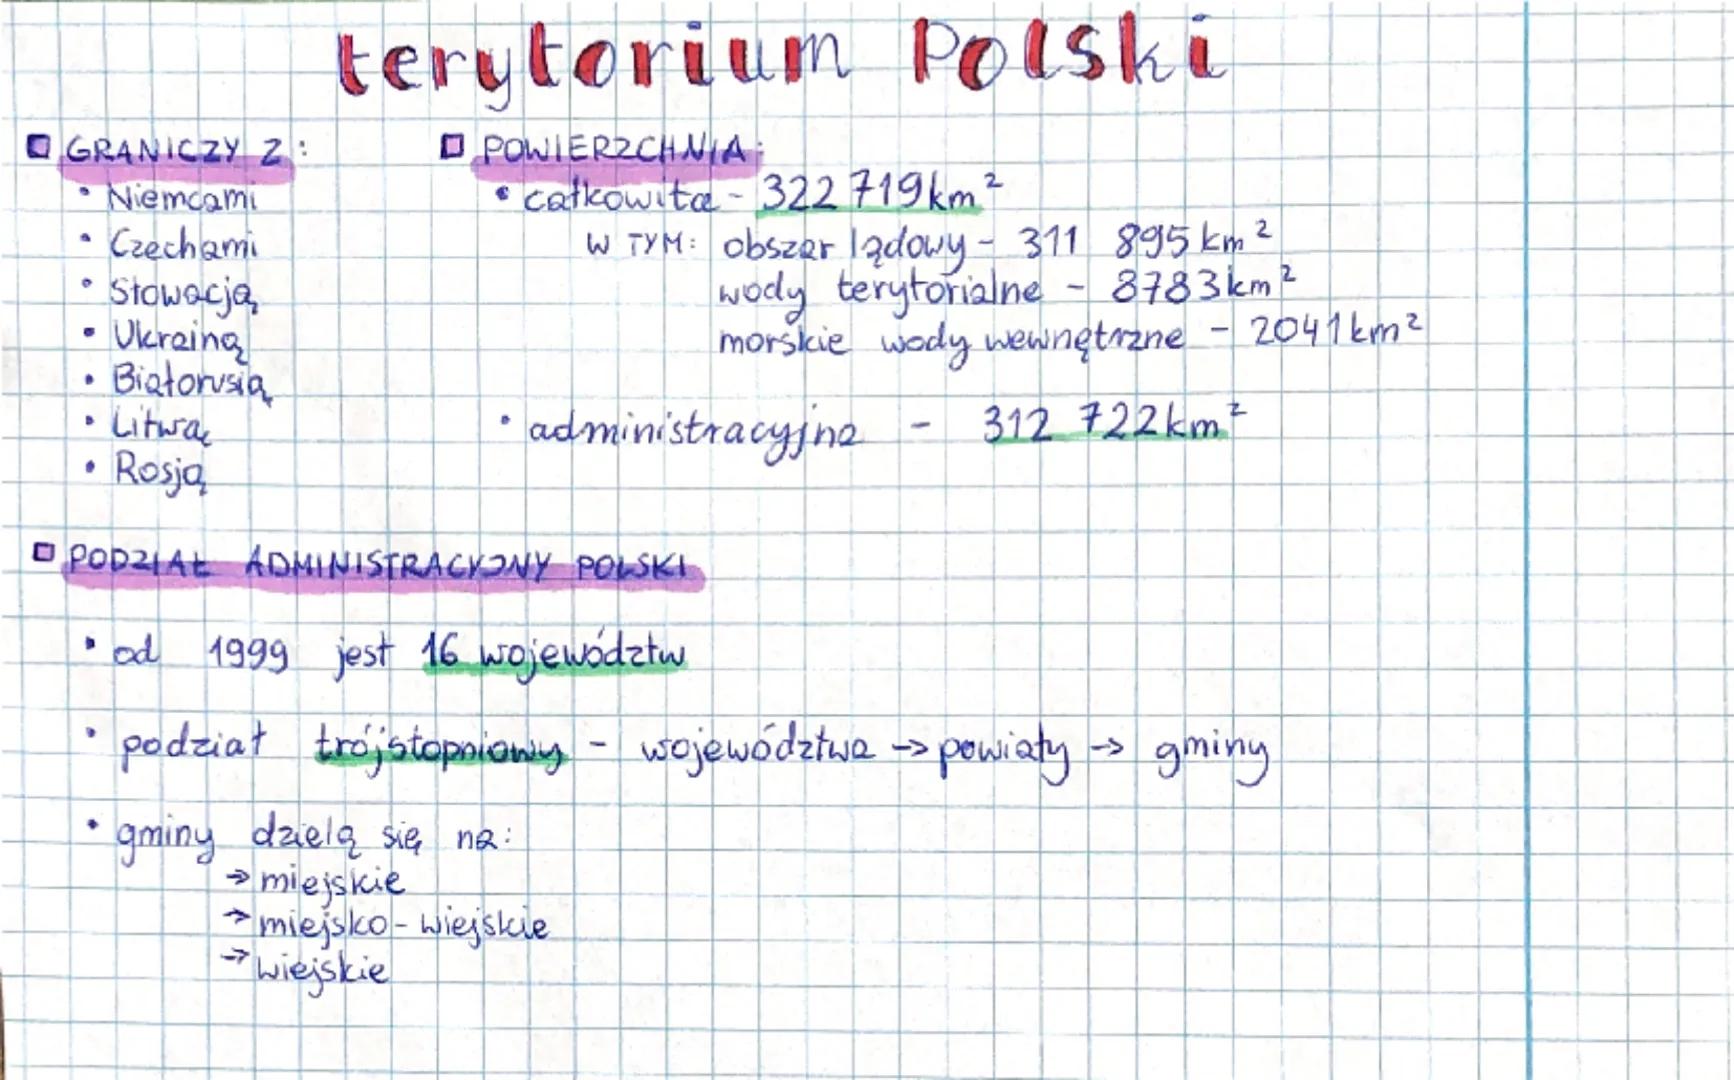 terytorium Polski
GRANICZY Z:
• Niemcami
• Czechami
• Słowacją
• Ukrainą
• Białorusią
• Litwą
• Rosją
POWIERZCHNIA:
• całkowita - 322 719 km²
W TYM: obszar lądowy - 311 895 km²
wody terytorialne - 8783 km²
morskie wody wewnętrzne - 2041 km²
• administracyjna - 312 722 km²
PODZIAŁ ADMINISTRACYJNY POLSKI
• od 1999 jest 16 województw
• podział trójstopniowy - województwa → powiaty → gminy
• gminy dzielą się na:
→ miejskie
→ miejsko-wiejskie
→ wiejskie